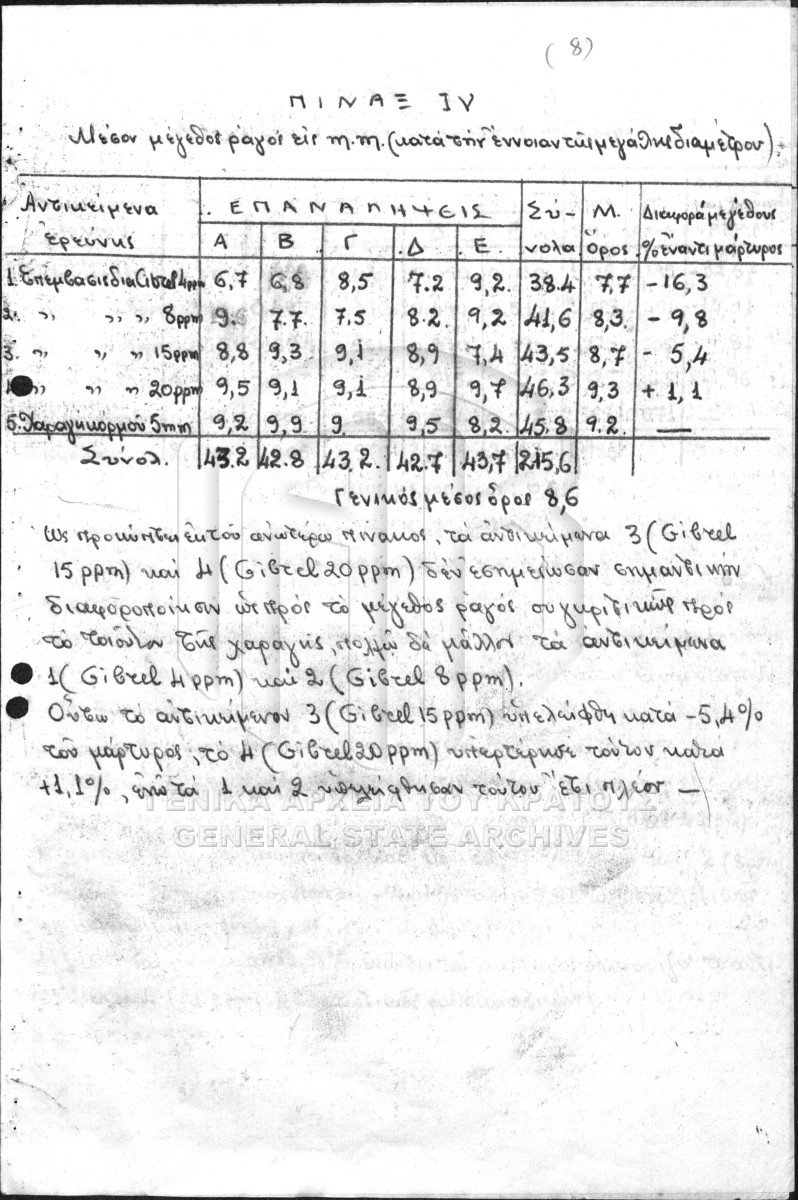 (8)
ΠΙΝΑΞ IV
Μέσον μέγεθος ραγός εις m.m. (κατά την έννοιαν της μεγάλης διαμέτρου).
Αντικείμενα ερεύνης | ΕΠΑΝΑΛΗΨΕΙΣ | Σύνολα | Μ. Όρος | Διαφορά μεγέθους % έναντι μάρτυρος
Α | Β | Γ | Δ | Ε
1. Επέμβασις δια Gibrel 4ppm | 6,7 | 6,8 | 8,5 | 7.2 | 9,2. | 38.4 | 7,7 | -16,3
2. " " " 8ppm | 9. | 7.7. | 7,5 | 8.2. | 9,2 | 41,6 | 8,3. | - 9,8
3. " " " 15ppm | 8,8 | 9,3 | 9,1 | 8,9 | 7,4 | 43,5 | 8,7 | - 5,4
" " " 20ppm | 9,5 | 9,1 | 9,1 | 8,9 | 9,7 | 46,3 | 9,3 | + 1,1
5. Χαραγή κορμού 5mm | 9,2 | 9,9 | 9. | 9,5 | 8,2. | 45.8 | 9.2. | —
Σύνολ. | 43.2 | 42.8 | 43,2. | 42.7 | 43,7 | 215,6
Γενικός μέσος όρος 8,6
Ως προκύπτει εκ του ανωτέρω πίνακος, τα αντικείμενα 3 (Gibrel
15 ppm) και 4 (Gibrel 20ppm) δεν εσημείωσαν σημαντικήν
διαφοροποίησιν ως προς το μέγεθος ραγός συγκριτικώς προς
το τοιούτον της χαραγής, πολλώ δε μάλλον τα αντικείμενα
1 (Gibrel 4ppm) και 2 (Gibrel 8ppm).
Ούτω το αντικείμενον 3 (Gibrel 15ppm) υπελείφθη κατά -5,4%
του μάρτυρος, το 4 (Gibrel 20ppm) υπερτέρησε τούτον κατά
+1,1%, ενώ τα 1 και 2 υπελείφθησαν τούτου έτι πλέον —
ΓΕΝΙΚΑ ΑΡΧΕΙΑ ΤΟΥ ΚΡΑΤΟΥΣ
GENERAL STATE ARCHIVES